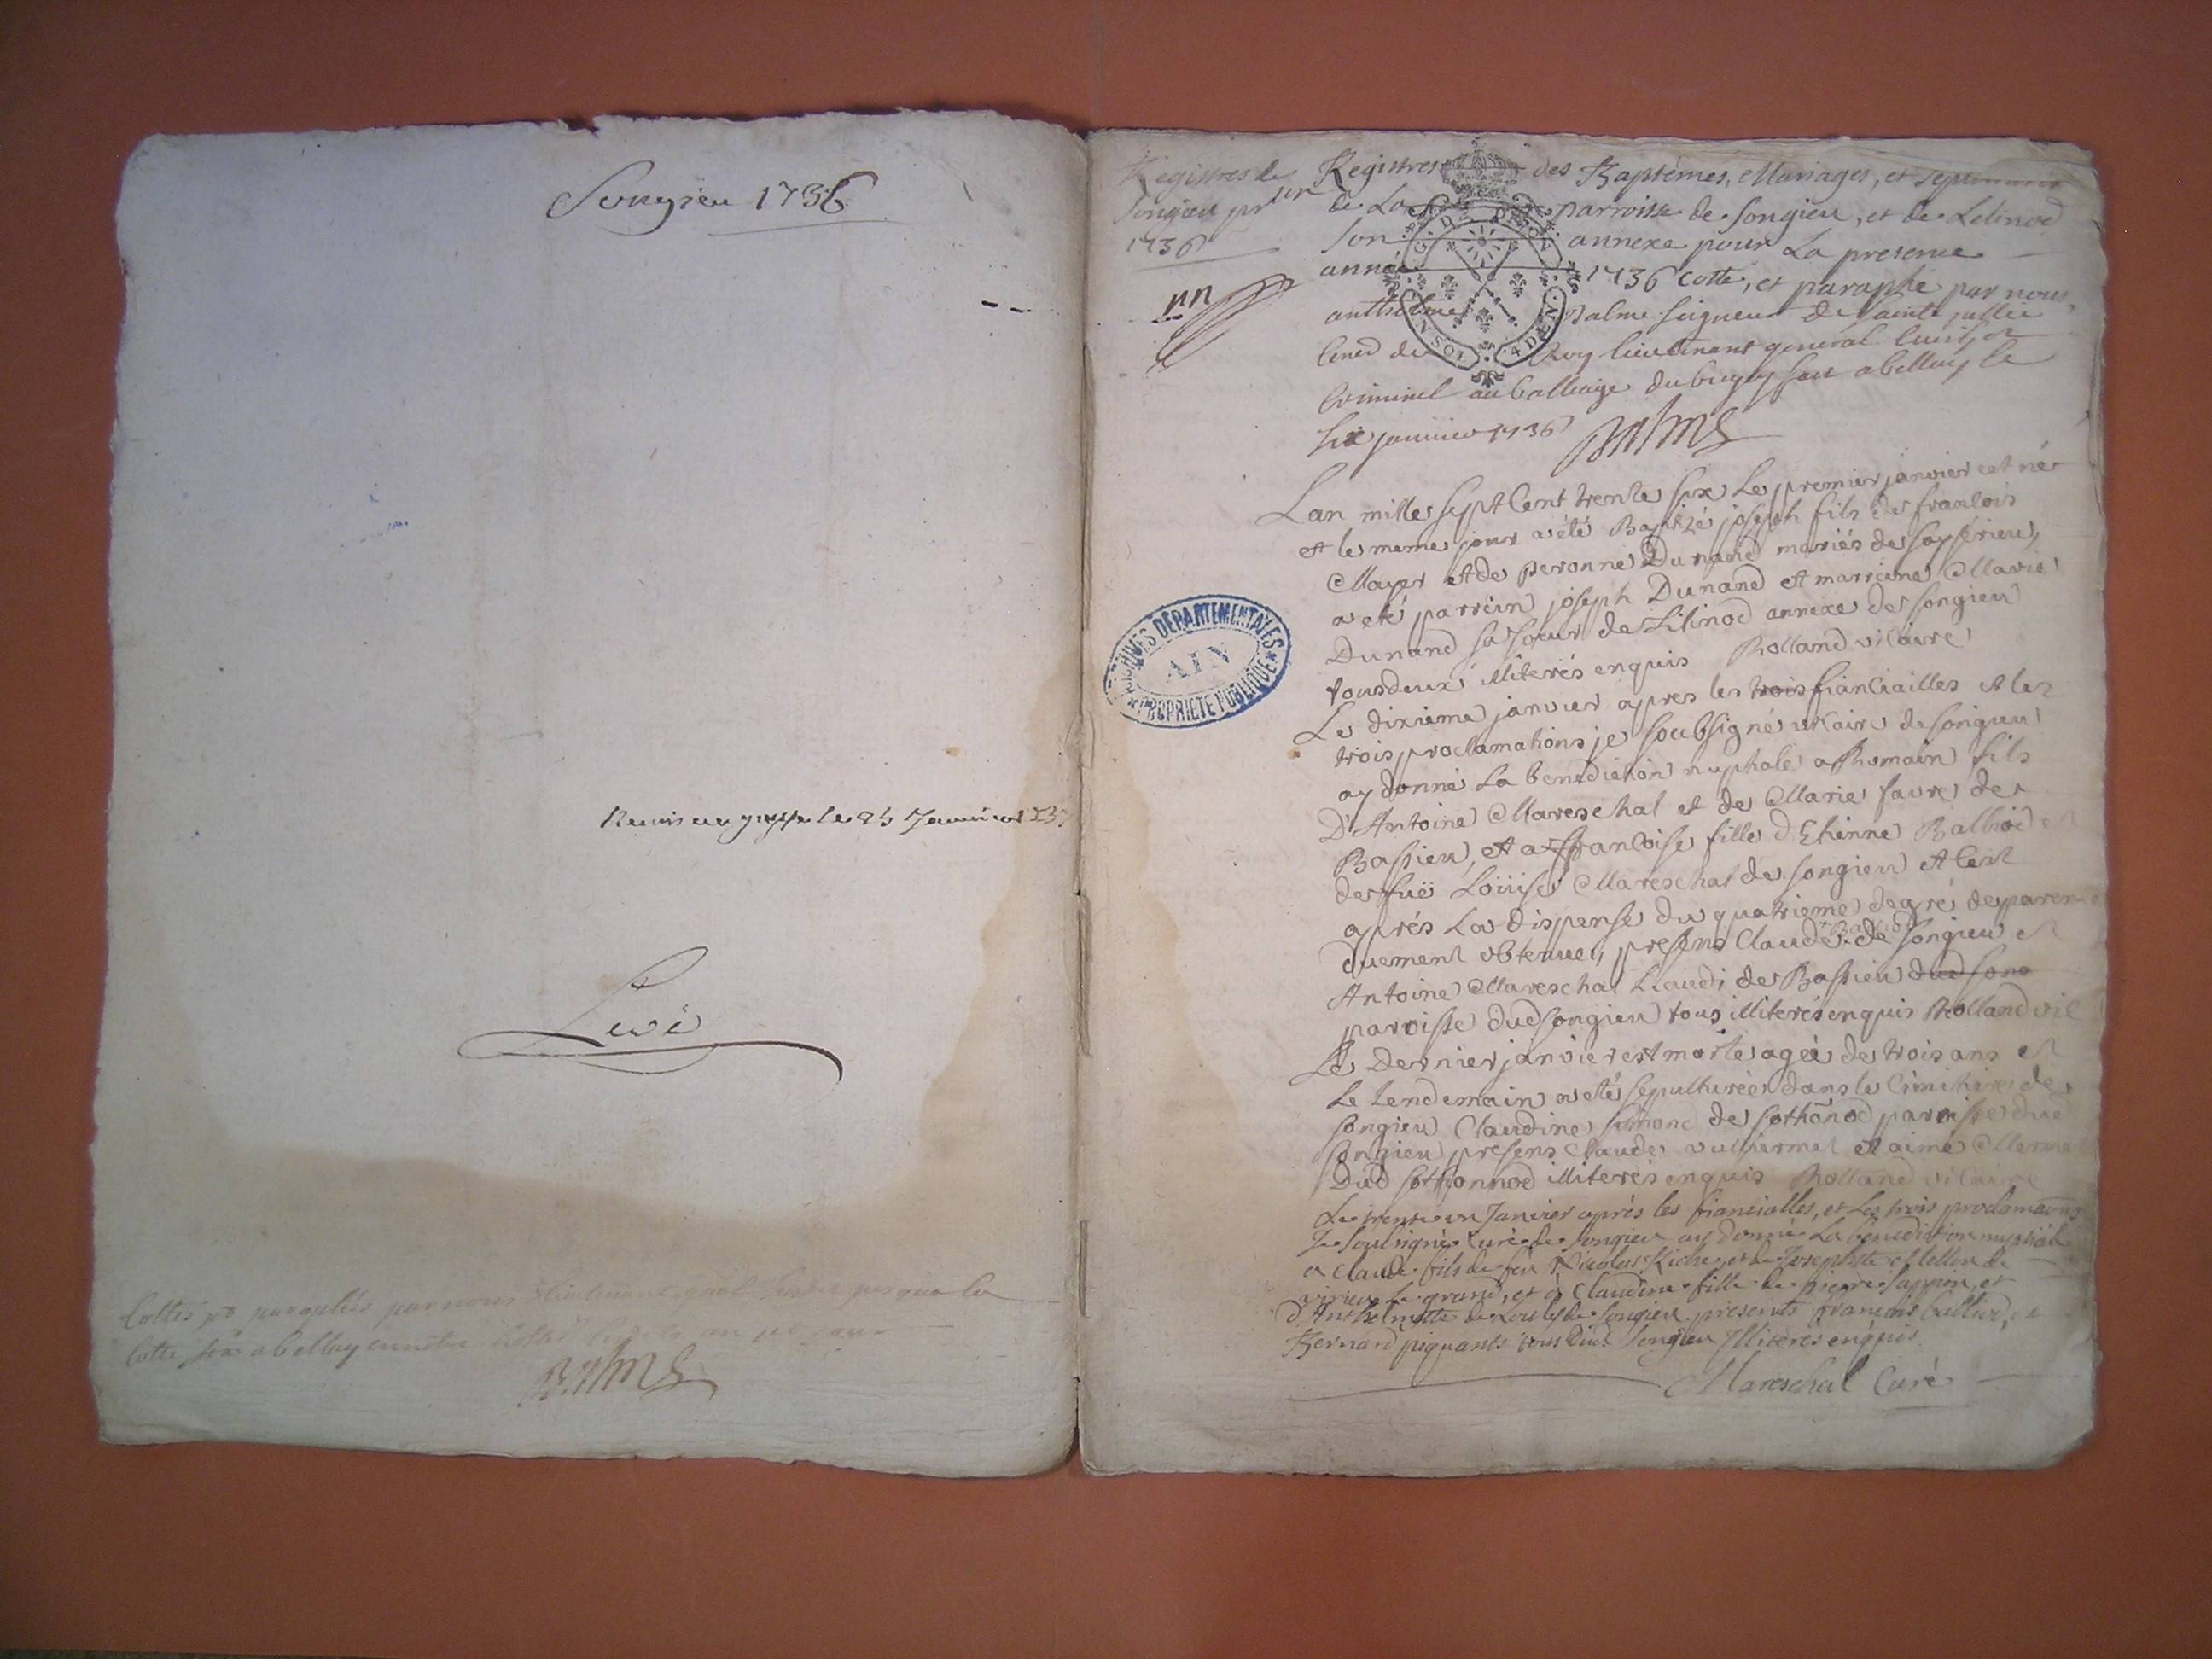 Songieu 1736
Remis au greffe le 25 Janvier 1737
Livé
Cottés et paraphés par nous Lieutenant gnal
cotte a belley en notre hostel
Balme
Registres de
Songieu pr
1736
Registres des Baptêmes, Mariages, et sepultures
de La parroisse de Songieu, et de Lilinod
son annexe pour La presente
année 1736 cotté, et paraphé par nous
antthelme Balme seigneur de sainte jullie
Coner du Roy lieutenant general Civil, et
Criminel au balliaige du bugey fait a belley le
six janvier 1736 Balme
SOL 4 DEN
Lan mille sept Cent trente six Le premier janvier est né
et le meme jour a été Baptizé joseph fils de francois
Mayer et de peronne Dunand mariés de sopférieu,
a eté parrein joseph Dunand et marreine Marie
Dunand sa soeur de Lilinod annexe de songieu
tousdeux illiterés enquis Rolland vicaire
ARCHIVES DÉPARTEMENTALES
AIN
PROPRIÉTÉ PUBLIQUE
Le dixieme janvier apres les trois fiancailles et les
trois proclamations je soubsigné vicaire de songieu
ay donné La benediction nuptiale a Romain fils
D'Antoine Mareschal et de Marie favre de
Bassieu, et a francoise fille d'Etienne Balliod et
de fuë Loüise Mareschal de songieu et Ceci
aprés La dispense du quatrieme degré de parenté
duement obtenue, presens Claude Balliod de songieu et
Antoine Mareschal de Bassieu dud song
paroisse dud songieu tous illiterés enquis Rolland vic
Le Dernier janvier est morte agée de trois ans et
Le Lendemain a eté sepulturée dans le Cimitiere de
songieu Claudine simond de sothonod paroisse dud
songieu presens Claude vulliermet et aimé Mermet
Dud sothonnod illiterés enquis Rolland vicaire
Le trente un Janvier aprés les fiancialles, et Les trois proclamaons
Je soubsigné Curé de songieu ay donné La benediction nuptiale
a Claude fils de feu Nicolas Riche et de Josephte de
virieu Le grand, et à Claudine fille de pierre Sappin, et
d'Anthelmette de songieu presents francois Culliod, et
Bernard piquants tous dud songieu Illiteres enquis
Mareschal Curé